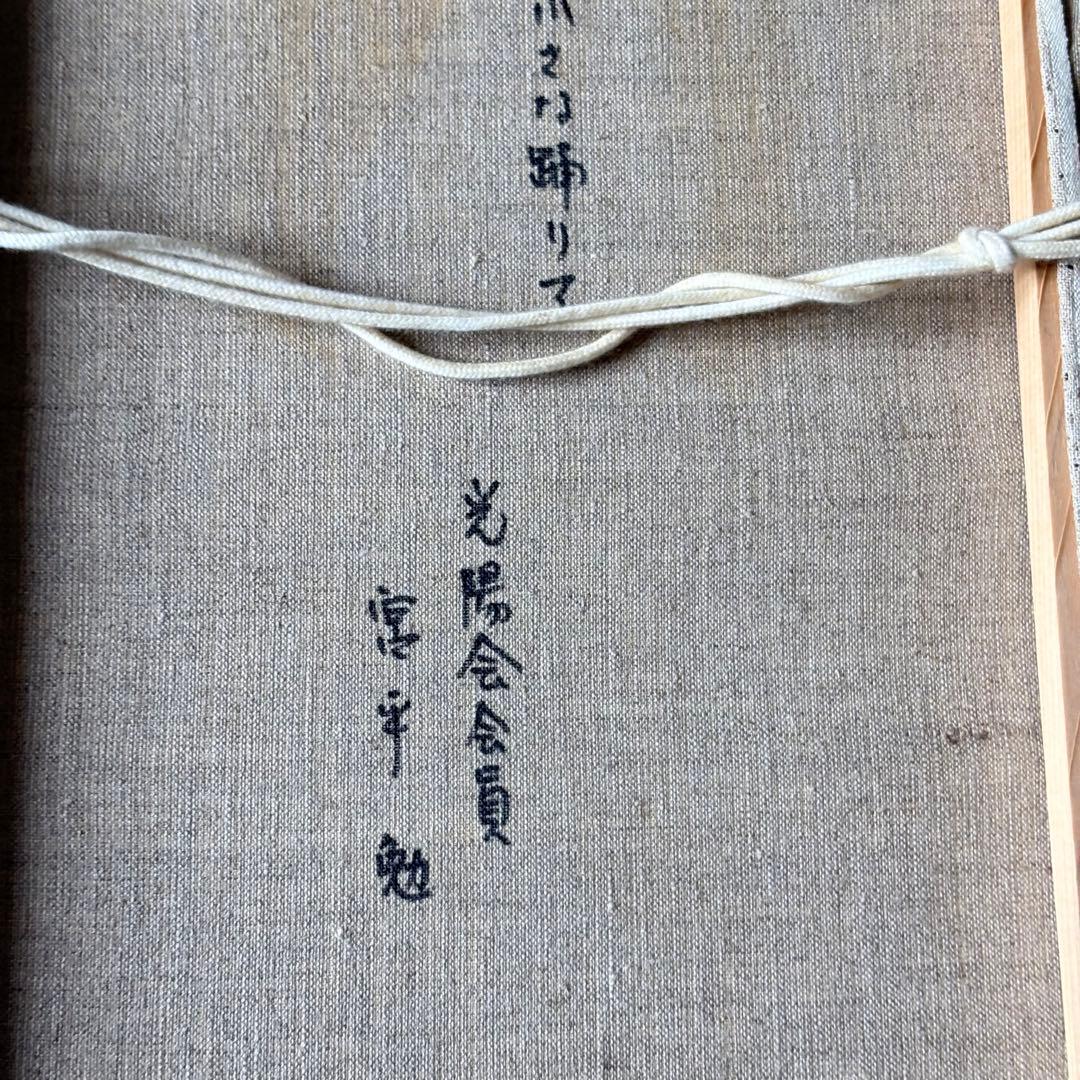 小さな踊り子
光陽会会員
宮平 勉